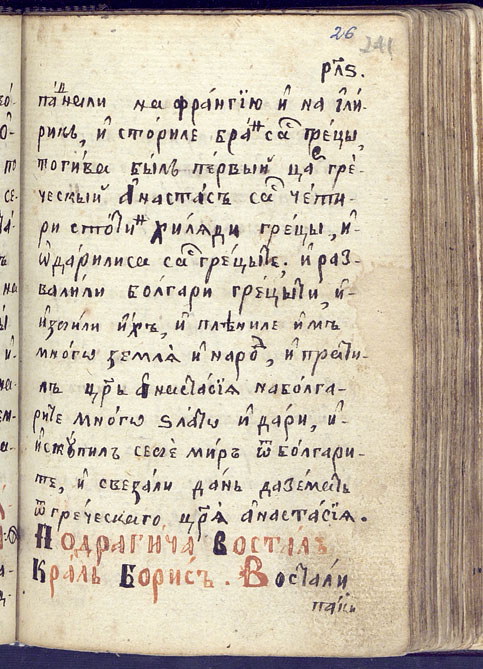 26
241
рл҃ѕ.
па́днали на фра́нгїю и҆ на и҆ли́-
рикъ, и҆ сториле бра́н са с гре́цы,
тогива былъ пе́рвый ца҃ гре́-
ческый а҆наста́съ са с че́ти-
ри сто́тин хиляди гре́цы, и҆
ѡ҆да́рилиса са с грецыте, и҆ раз-
валили болгари гре́цыти, и҆
и҆згили и҆́хъ, и҆ плѣниле и҆мъ
мно́гѡ землѧ̀ и҆ наро́д, и҆ пра́ти-
лъ цр҃ь а҆наста́сїѧ на болга-
рите мно́гѡ ѕла́тѡ и҆ дари, и҆
и҆скꙋпилъ себѐ ми́ръ ѿ бо́лгари-
те, и҆ свезали да́нь да зе́матъ
ѿ гре́ческаго цр҃ѧ̀ а҆наста́сїѧ.
По драгича востал
Краль Борисъ. Востали
паки